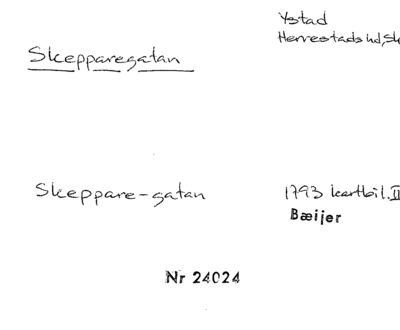 Ystad
Herrestads hd, Sk
Skepparegatan
Skeppare-gatan
1793 kartbil. II
Bæijer
Nr 24024